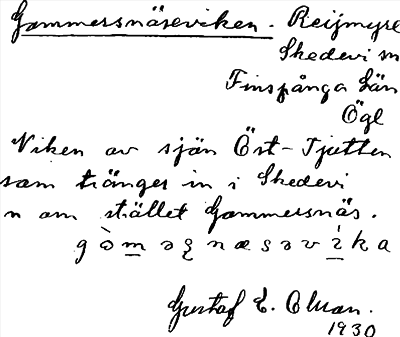 Gammersnäseviken. Reijmyre
Skedevi sn
Finspånga Län
Ögl
Viken av sjön Öst-Tjutten
som tränger in i Skedevi
n om stället Gammersnäs.
Gustaf E.
1930